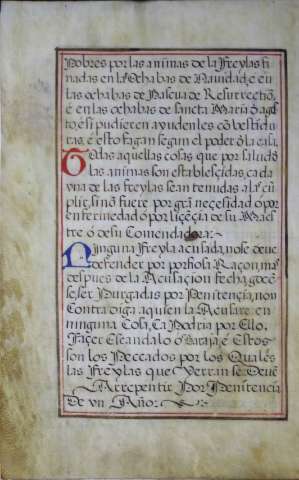 Pobres por las animas de la Freylas fi
nadas en la Ochabas de Navidad, e en
las ochabas de Pascua de Resurrection,
e en las ochabas de sancta Maria d̃ ago
sto, e si pudieren ayudenles cõ bestidu
ras, e esto fagan segun el poder d̃ la casa.
Todas aquellas cosas que por salud d̃
las animas son establesçidas, cada
vna de las freylas sean tenudas a las cũ
plir, sino fuere por grã necesidad o por
enfermedad o por liçençia de su Maes
tre ó de su Comendadora.
Ninguna Freyla acusada, no se deue
defender por porfiosa Raçon, mas
despues de la Acusaçion fecha,
se, ser Purgadas por Penitençia, non
Contradiga aquien la Acusare en
ninguna Cosa, Ca Podria por Ello,
Façer Escandalo ó Baraja, é Estos
son los Peccados por los Quales
las Freylas que Verran se Deuẽ
Arrepentir Por Penitencia
De vn Año